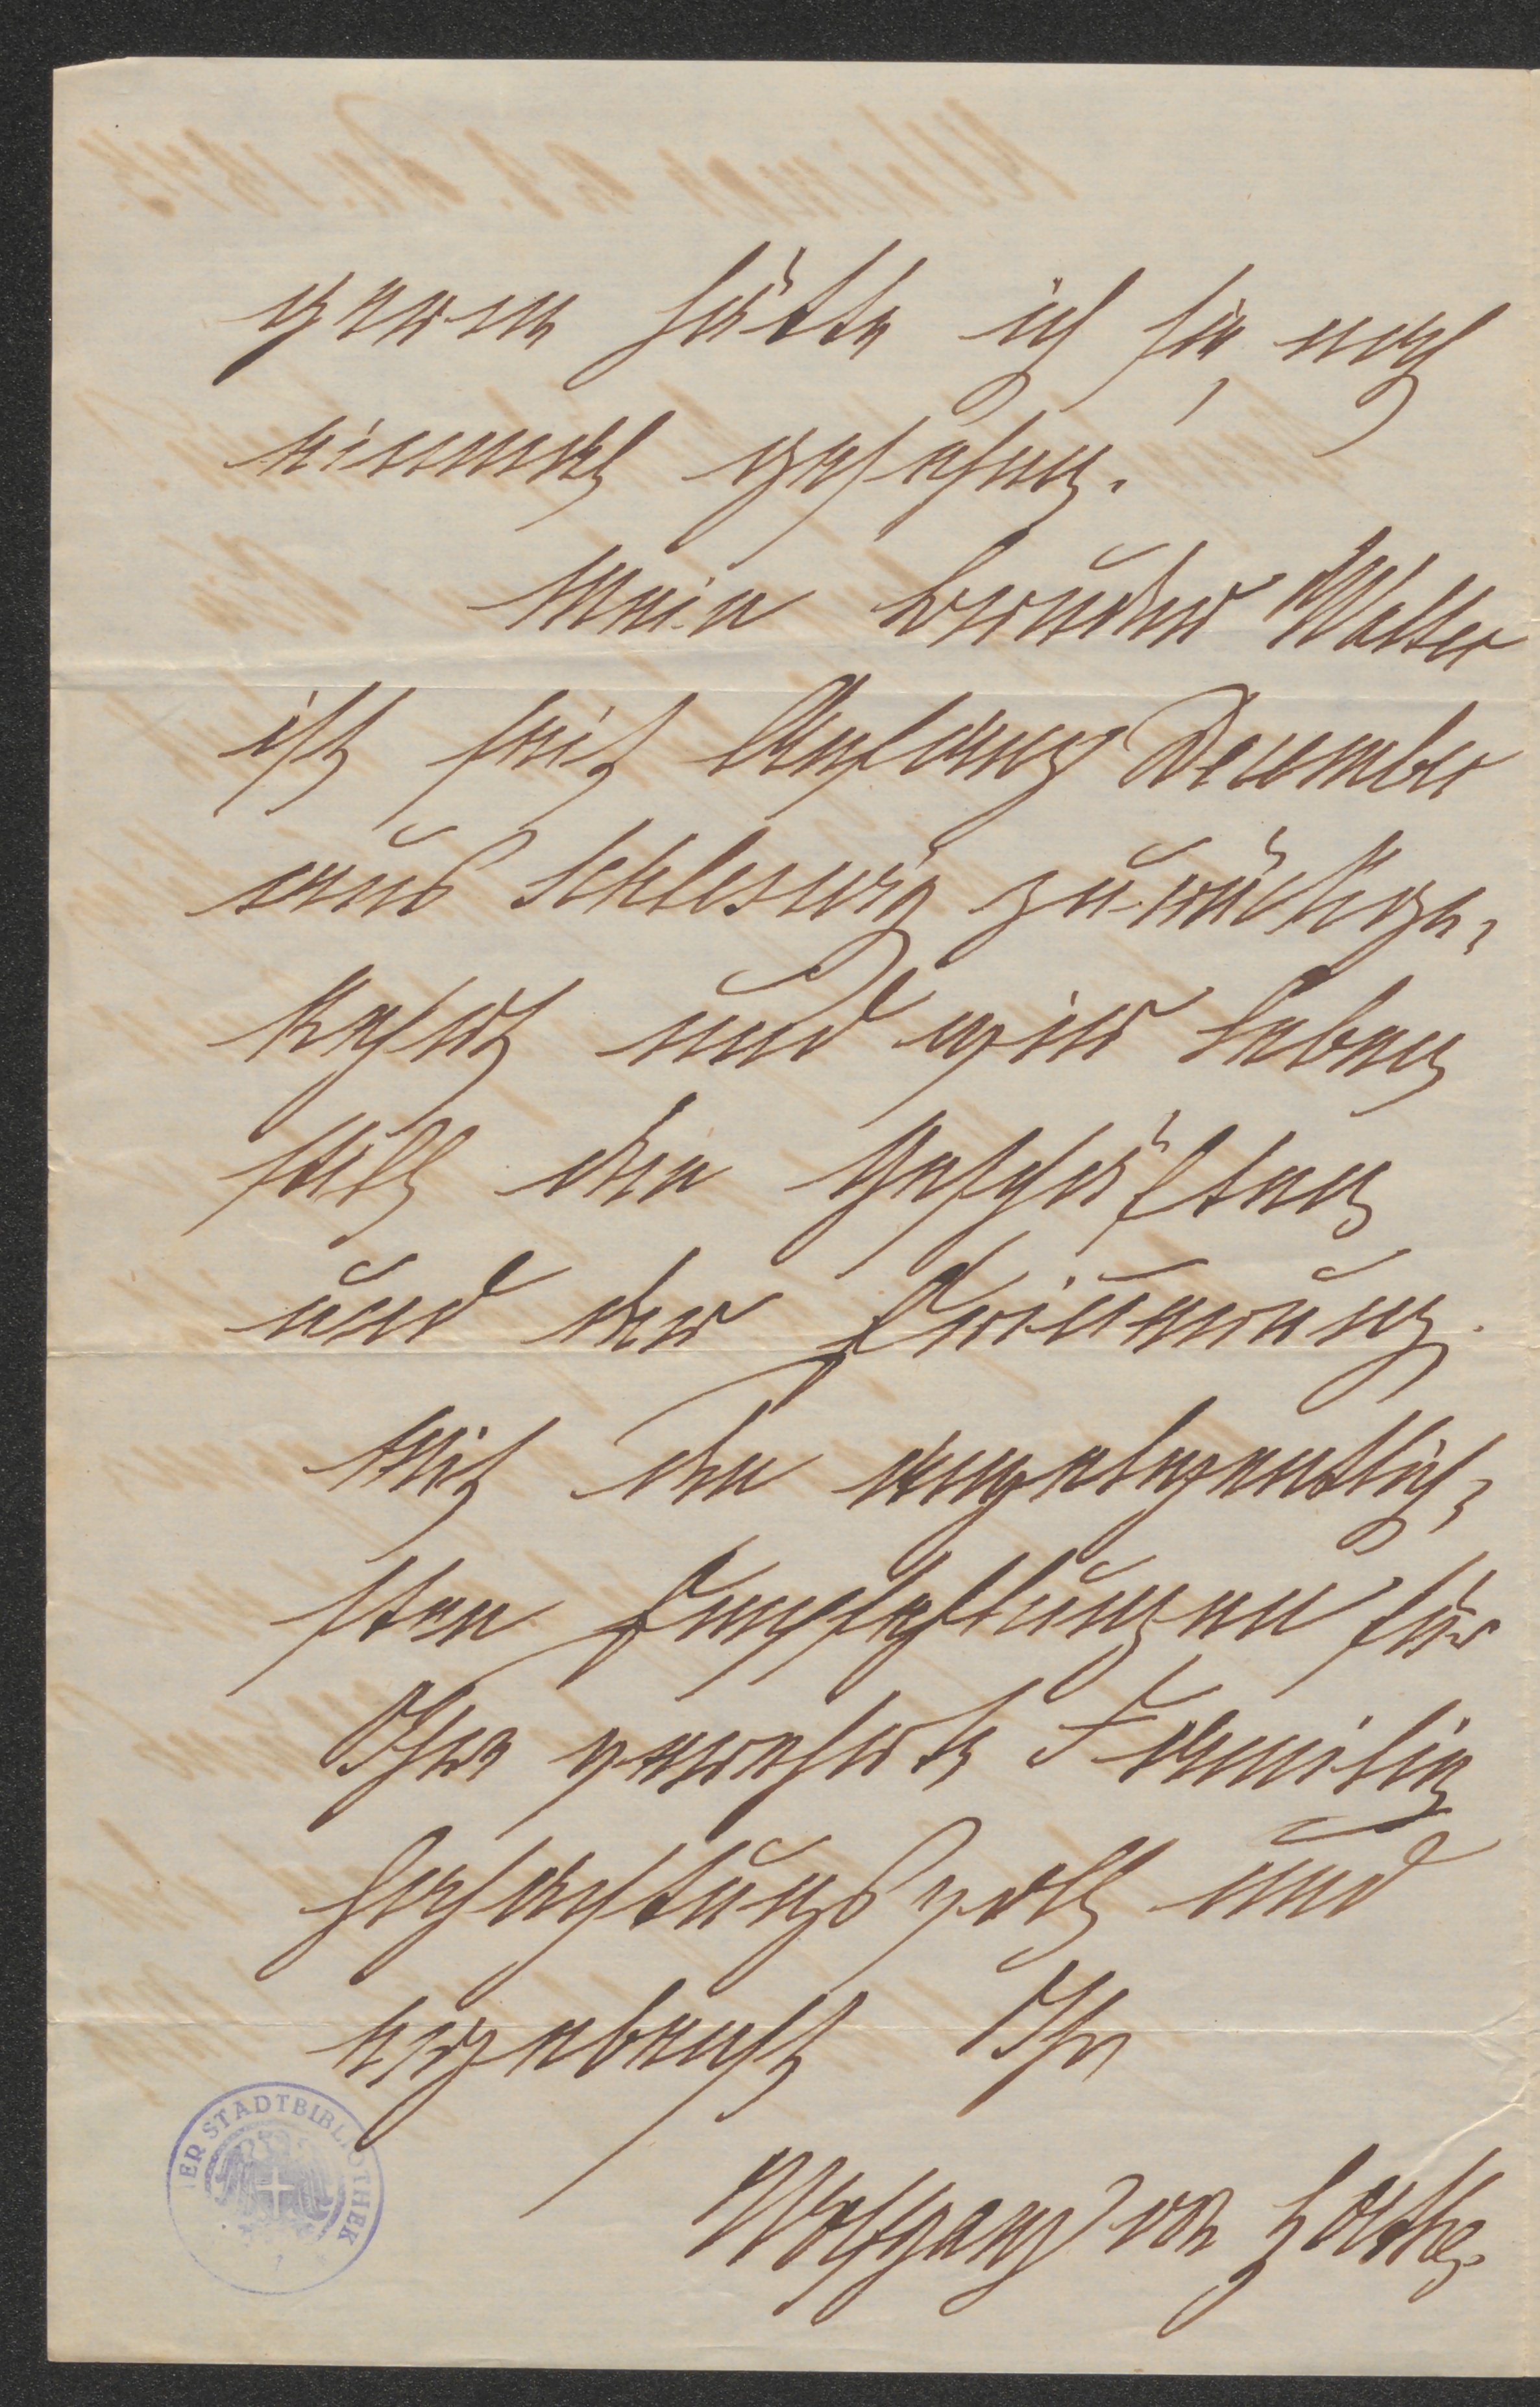 gerne hätte ich sie noch
einmal gesehen.
Mein Bruder Walter
ist seit Anfang December
aus Schleswig zurückge-
kehrt und wir leben
still den Geschäften
und der Erinnerung.
Mit den angelegentlich-
sten Empfehlungen für
Ihre verehrte Familie
hochachtungsvoll und
ergebenst Ihr
Wolfgang von Goethe.
ER STADTBIBLIOTHEK